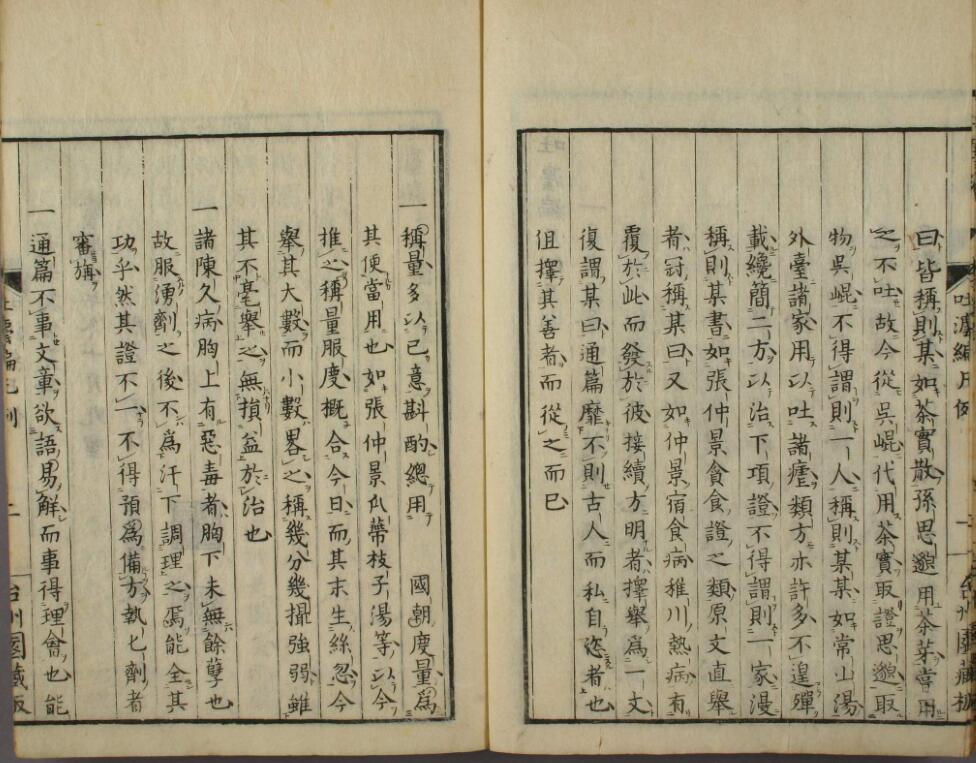 曰皆稱則某如茶實散孫思邈用茶芽當用
之不吐故今從吳崐代用茶實取證思邈取
物吳崐不得謂則一人稱則某某如常山湯
外臺諸家用以吐諸瘧類方亦許多不遑殫
載纔簡二方以治下項證不得謂則一家漫
稱則某書如張仲景貪食證之類原文直舉
者冠稱某曰又如仲景宿食病稚川熱病有
覆於此而發於彼接續方明者擇舉爲一文
復謂某曰通篇靡不則古人而私自恣者也
但擇其善者而從之而已
一稱量多以己意斟酌總用 國朝度量爲
其便當用也如張仲景瓜蔕枝子湯等以今
推之稱量服度概合今日而其末生絲忽今
舉其大數而小數畧之稱幾分幾撮強弱雖
其不毫舉之無損益於治也
一諸陳久病胸上有惡毒者胸下未無餘孽也
故服湧劑之後不爲汗下調理之焉能全其
功乎然其證不一不得預爲備方執匕劑者
審旃
一通篇不事文章欲語易解而事得理會也能